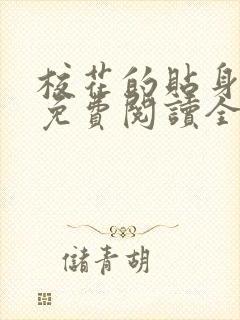 校花的貼身
免費閱讀全
儲青胡